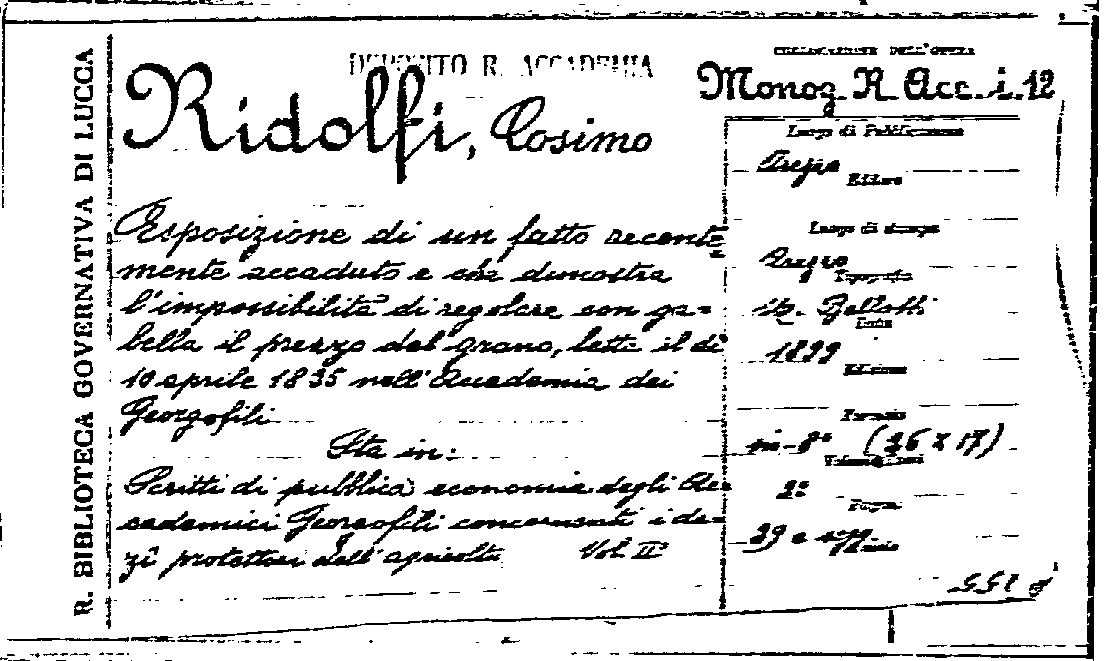 R. BIBLIOTECA GOVERNATIVA DI LUCCA
DEPOSITO R. ACCADEMIA
Ridolfi, Cosimo
Esposizione di un fatto recente
mente accaduto e che dimostra
l'impossibilità di regolare con ga-
bella il prezzo del grano, letta il dì
10 aprile 1835 nell'Accademia dei
Georgofili
Sta in:
Scritti di pubblica economia degli Ac
cademici Georgofili concernenti i da-
zi protettori dell'agricolta Vol. II
COLLOCAZIONE DELL'OPERA
Monog. R. Acc. i. 12
Luogo di Pubblicazione
Arezzo
Editore
Luogo di stampa
Arezzo
Tipografia
Bellotti
Data
1899
Edizione
Formato
in-8° (26 x 17)
Volumi
2°
Pagine
39 e sgg.